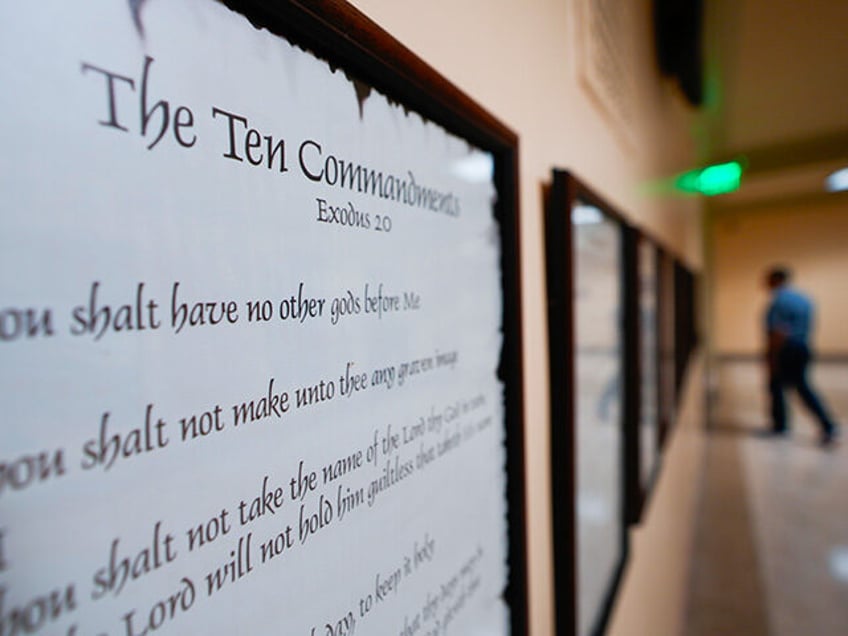 The Ten Commandments
Exodus 20
ou shalt have no other gods before Me
ou shalt not make unto thee any graven image
hou shalt not take the name of the Lord thy God in vain,
Lord will not hold him guiltless that taketh
day, to keep it holy
that thy days